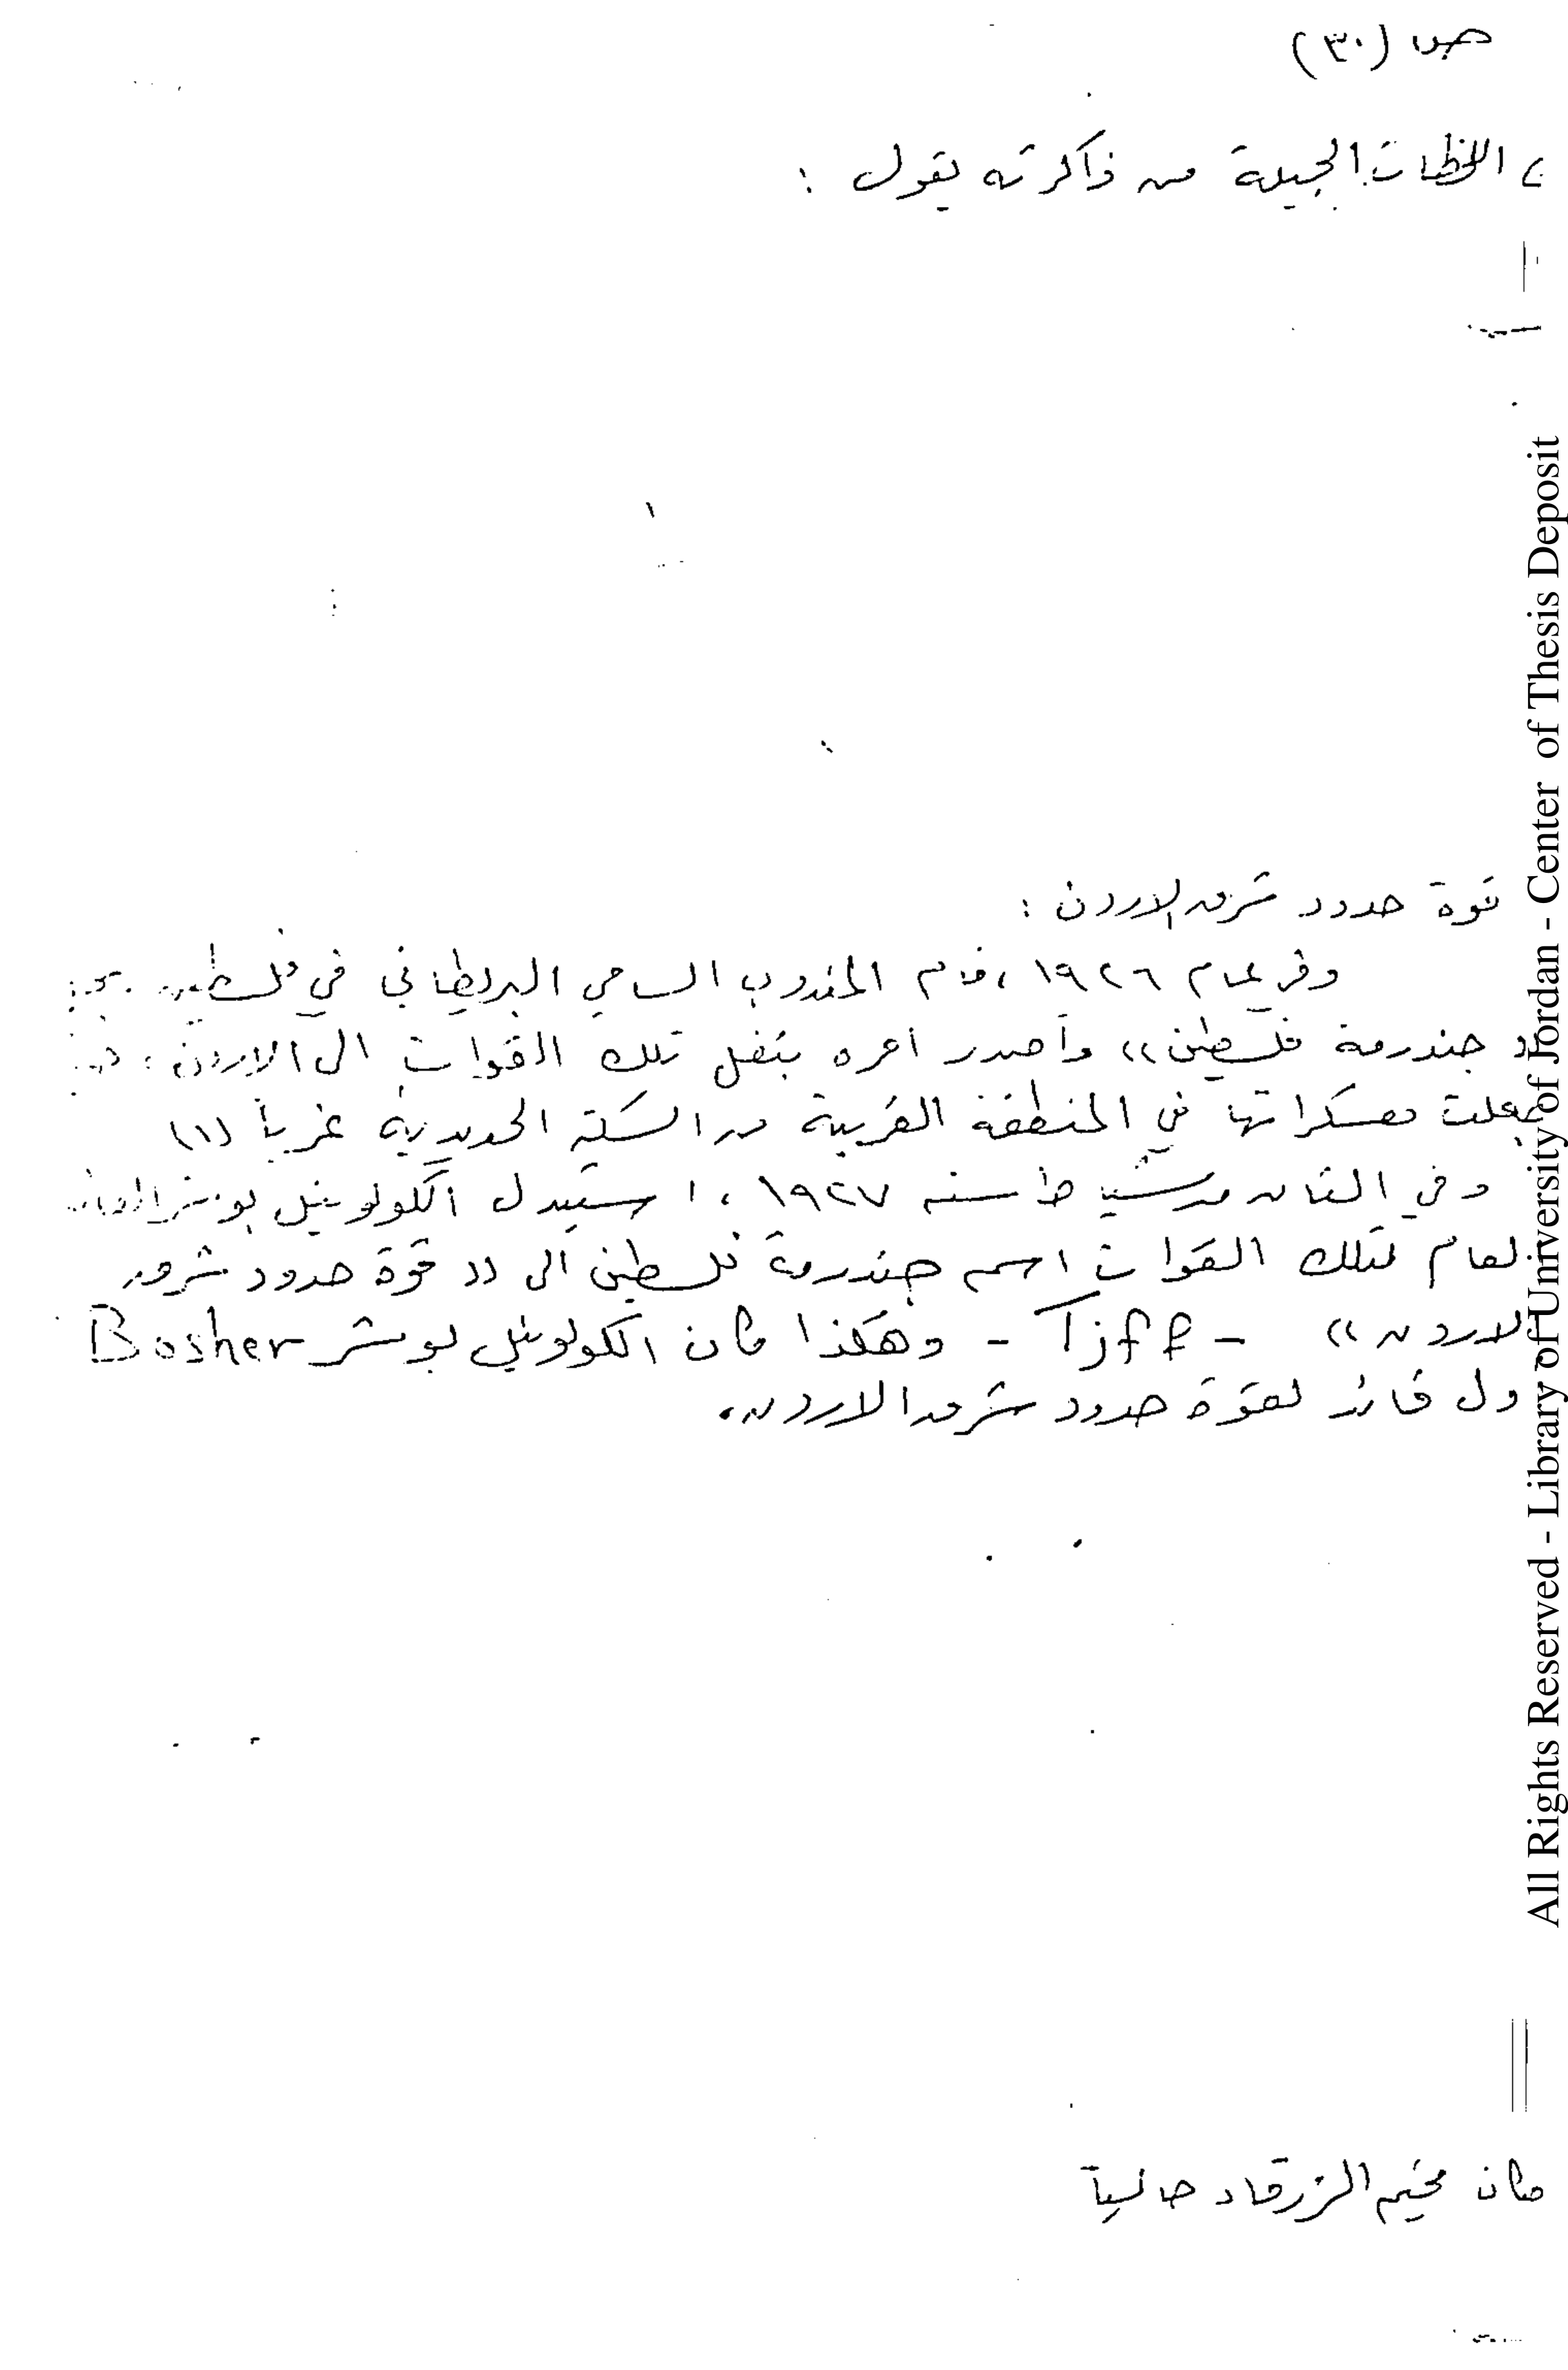 ص (٣٠)
اللحظات الجميلة من ذاكرته يقول :
قوة حدود شرق الاردن :
وفي عام ١٩٢٦ ، قام المندوب السامي البريطاني في فلسطين
(( جندرمة فلسطين )) وأصدر أمره بنقل تلك القوات الى الاردن ،
جعلت معسكراتها في المنطقة القريبة من السكة الحديدية غرباً (١)
وفي الثامن من شباط سنه ١٩٢٧ ، استبدل الكولونيل بوشر
لعام لتلك القوات اسم جندرمة فلسطين الى (( قوة حدود شرق
الاردن )) - Tjff - وهكذا كان الكولونيل بوشر Bosher
ول قائد لقوة حدود شرق الاردن .
مكان مخيم الزرقاء حالياً
All Rights Reserved - Library of University of Jordan - Center of Thesis Deposit